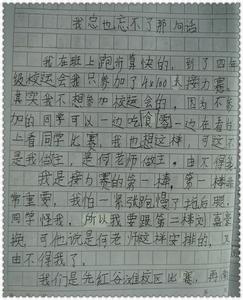 我总也忘不了那句话
我在班上跑步算快的，到了四年
级校运会我只参加了4x100大接力赛。
其实我不想参加校运会的，因为不参
加的同学可以一边吃食零一边在看台
上看同学比赛，我也想这样，可这不
是我做主，是何老师做主。由不得我
我是接力赛的第一棒，第一棒非
常重要，我怕一紧张跑慢了拖后腿，
同学怪我，所以我要跟第二棒刘嘉
换，可他说是何老师这样安排的，又
由不得我了。
我们是先红谷滩校区比赛，再